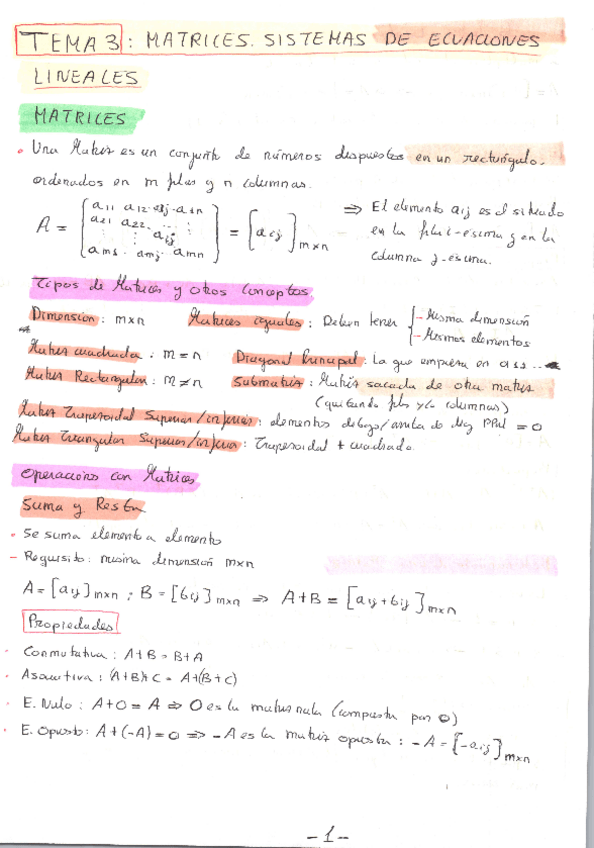 TEMA 3: MATRICES. SISTEMAS DE ECUACIONES
LINEALES
MATRICES
• Una Matriz es un conjunto de números dispuestos en un rectángulo.
ordenados en m filas y n columnas.
A = [a11 a12 ... a1j ... a1n
a21 a22 ...
aij
am1 ... amj ... amn] = [aij]m×n
⇒ El elemento aij es el situado
en la fila i-esima y en la
columna j-esima.
Tipos de Matrices y otros conceptos.
Dimension: m×n Matrices iguales: Deben tener { - Misma dimensión
- Mismos elementos
Matriz cuadrada: m=n Diagonal Principal: La que empieza en a11 ...
Matriz Rectangular: m≠n Submatriz: Matriz sacada de otra matriz
(quitando filas y/o columnas)
Matriz Trapezoidal Superior/inferior: elementos debajo/arriba de Diag PPal = 0
Matriz Triangular Superior/inferior: Trapezoidal + cuadrada.
Operaciones con Matrices
Suma y Resta
• Se suma elemento a elemento
- Requisito: misma dimensión m×n
A = [aij]m×n ; B = [bij]m×n ⇒ A+B = [aij+bij]m×n
Propiedades
· Conmutativa: A+B = B+A
· Asociativa: (A+B)+C = A+(B+C)
· E. Nulo: A+0 = A ⇒ 0 es la matriz nula (compuesta por 0)
· E. Opuesto: A+(-A)=0 ⇒ -A es la matriz opuesta: -A = [-aij]m×n
-1-